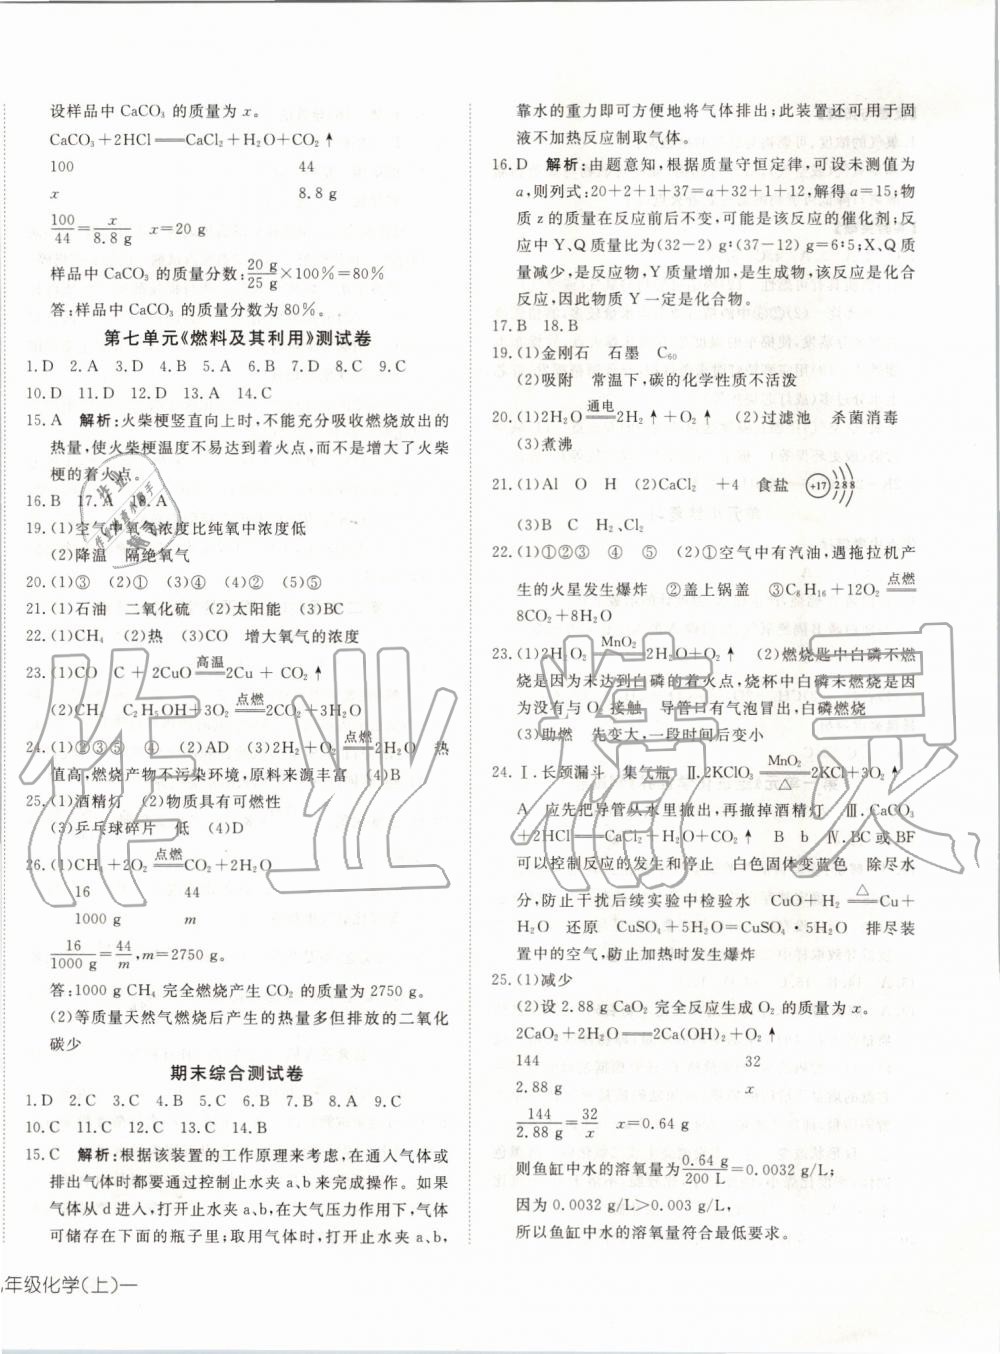 设样品中 CaCO₃ 的质量为 x。
CaCO₃+2HCl══CaCl₂+H₂O+CO₂↑
100 44
x 8.8 g
100/44=x/8.8 g x=20 g
样品中 CaCO₃ 的质量分数:20 g/25 g×100%=80%
答:样品中 CaCO₃ 的质量分数为 80%。
第七单元《燃料及其利用》测试卷
1.D 2.A 3.D 4.B 5.A 6.B 7.D 8.C 9.C
10.D 11.D 12.D 13.A 14.C
15.A 解析:火柴梗竖直向上时,不能充分吸收燃烧放出的
热量,使火柴梗温度不易达到着火点,而不是增大了火柴
梗的着火点。
16.B 17.A 18.A
19.(1)空气中氧气浓度比纯氧中浓度低
(2)降温 隔绝氧气
20.(1)③ (2)① (3)④ (4)② (5)⑤
21.(1)石油 二氧化硫 (2)太阳能 (3)BC
22.(1)CH₄ (2)热 (3)CO 增大氧气的浓度
23.(1)CO C+2CuO 高温══ 2Cu+CO₂↑
(2)CH₄ C₂H₅OH+3O₂ 点燃══ 2CO₂+3H₂O
24.(1)①③⑤ ④ (2)AD (3)2H₂+O₂ 点燃══ 2H₂O 热
值高,燃烧产物不污染环境,原料来源丰富 (4)B
25.(1)酒精灯 (2)物质具有可燃性
(3)乒乓球碎片 低 (4)D
26.(1)CH₄+2O₂ 点燃══ CO₂+2H₂O
16 44
1000 g m
16/1000 g=44/m,m=2750 g。
答:1000 g CH₄ 完全燃烧产生 CO₂ 的质量为 2750 g。
(2)等质量天然气燃烧后产生的热量多但排放的二氧化
碳少
期末综合测试卷
1.D 2.C 3.C 4.B 5.C 6.C 7.B 8.A 9.C
10.C 11.C 12.C 13.C 14.B
15.C 解析:根据该装置的工作原理来考虑,在通入气体或
排出气体时都要通过控制止水夹 a、b 来完成操作。如果
气体从 d 进入,打开止水夹 a、b,在大气压力作用下,气体
可储存在下面的瓶子里;取用气体时,打开止水夹 a、b,
年级化学(上)一
靠水的重力即可方便地将气体排出;此装置还可用于固
液不加热反应制取气体。
16.D 解析:由题意知,根据质量守恒定律,可设未测值为
a,则列式:20+2+1+37=a+32+1+12,解得 a=15;物
质 z 的质量在反应前后不变,可能是该反应的催化剂;反
应中 Y、Q 质量比为(32-2) g:(37-12) g=6:5;X、Q质
量减少,是反应物,Y 质量增加,是生成物,该反应是化合
反应,因此物质 Y 一定是化合物。
17.B 18.B
19.(1)金刚石 石墨 C₆₀
(2)吸附 常温下,碳的化学性质不活泼
20.(1)2H₂O 通电══ 2H₂↑+O₂↑ (2)过滤池 杀菌消毒
(3)煮沸
21.(1)Al O H (2)CaCl₂ +4 食盐 +17 2 8 8
(3)B C H₂、Cl₂
22.(1)①②③ ④ ⑤ (2)①空气中有汽油,遇拖拉机产
生的火星发生爆炸 ②盖上锅盖 ③C₈H₁₆+12O₂ 点燃══
8CO₂+8H₂O
23.(1)2H₂O₂ MnO₂══ 2H₂O+O₂↑ (2)燃烧匙中白磷不燃
烧是因为未达到白磷的着火点,烧杯中白磷未燃烧是因
为没有与 O₂ 接触 导管口有气泡冒出,白磷燃烧
(3)助燃 先变大,一段时间后变小
24.Ⅰ.长颈漏斗 集气瓶 Ⅱ.2KClO₃ MnO₂══△ 2KCl+3O₂↑
A 应先把导管从水里撤出,再撤掉酒精灯 Ⅲ.CaCO₃
+2HCl══CaCl₂+H₂O+CO₂↑ B b Ⅳ.BC 或 BF
可以控制反应的发生和停止 白色固体变蓝色 除尽水
分,防止干扰后续实验中检验水 CuO+H₂ △══ Cu+
H₂O 还原 CuSO₄+5H₂O=CuSO₄·5H₂O 排尽装
置中的空气,防止加热时发生爆炸
25.(1)减少
(2)设 2.88 g CaO₂ 完全反应生成 O₂ 的质量为 x。
2CaO₂+2H₂O══2Ca(OH)₂+O₂↑
144 32
2.88 g x
144/2.88 g=32/x x=0.64 g
则鱼缸中水的溶氧量为0.64 g/200 L=0.0032 g/L;
因为 0.0032 g/L>0.003 g/L,
所以鱼缸中水的溶氧量符合最低要求。
作业精灵